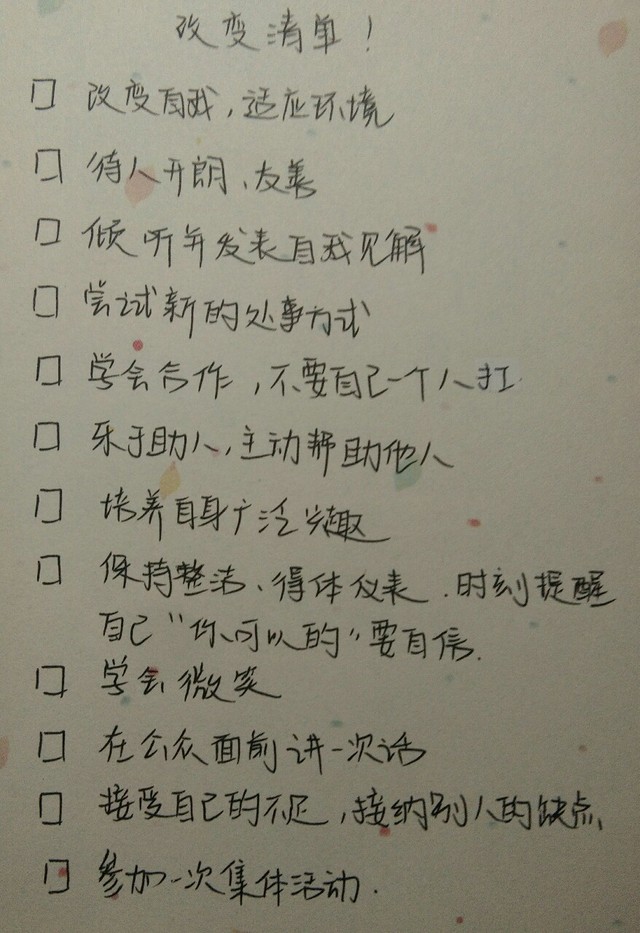 改变清单！
改变自我，适应环境
待人开朗、友善
倾听并发表自我见解
尝试新的处事方式
学会合作，不要自己一个人扛.
乐于助人，主动帮助他人
培养自身广泛兴趣
保持整洁、得体仪表.时刻提醒
自己“你可以的”要自信.
学会微笑
在公众面前讲一次话
接受自己的不足，接纳别人的缺点、
参加一次集体活动.